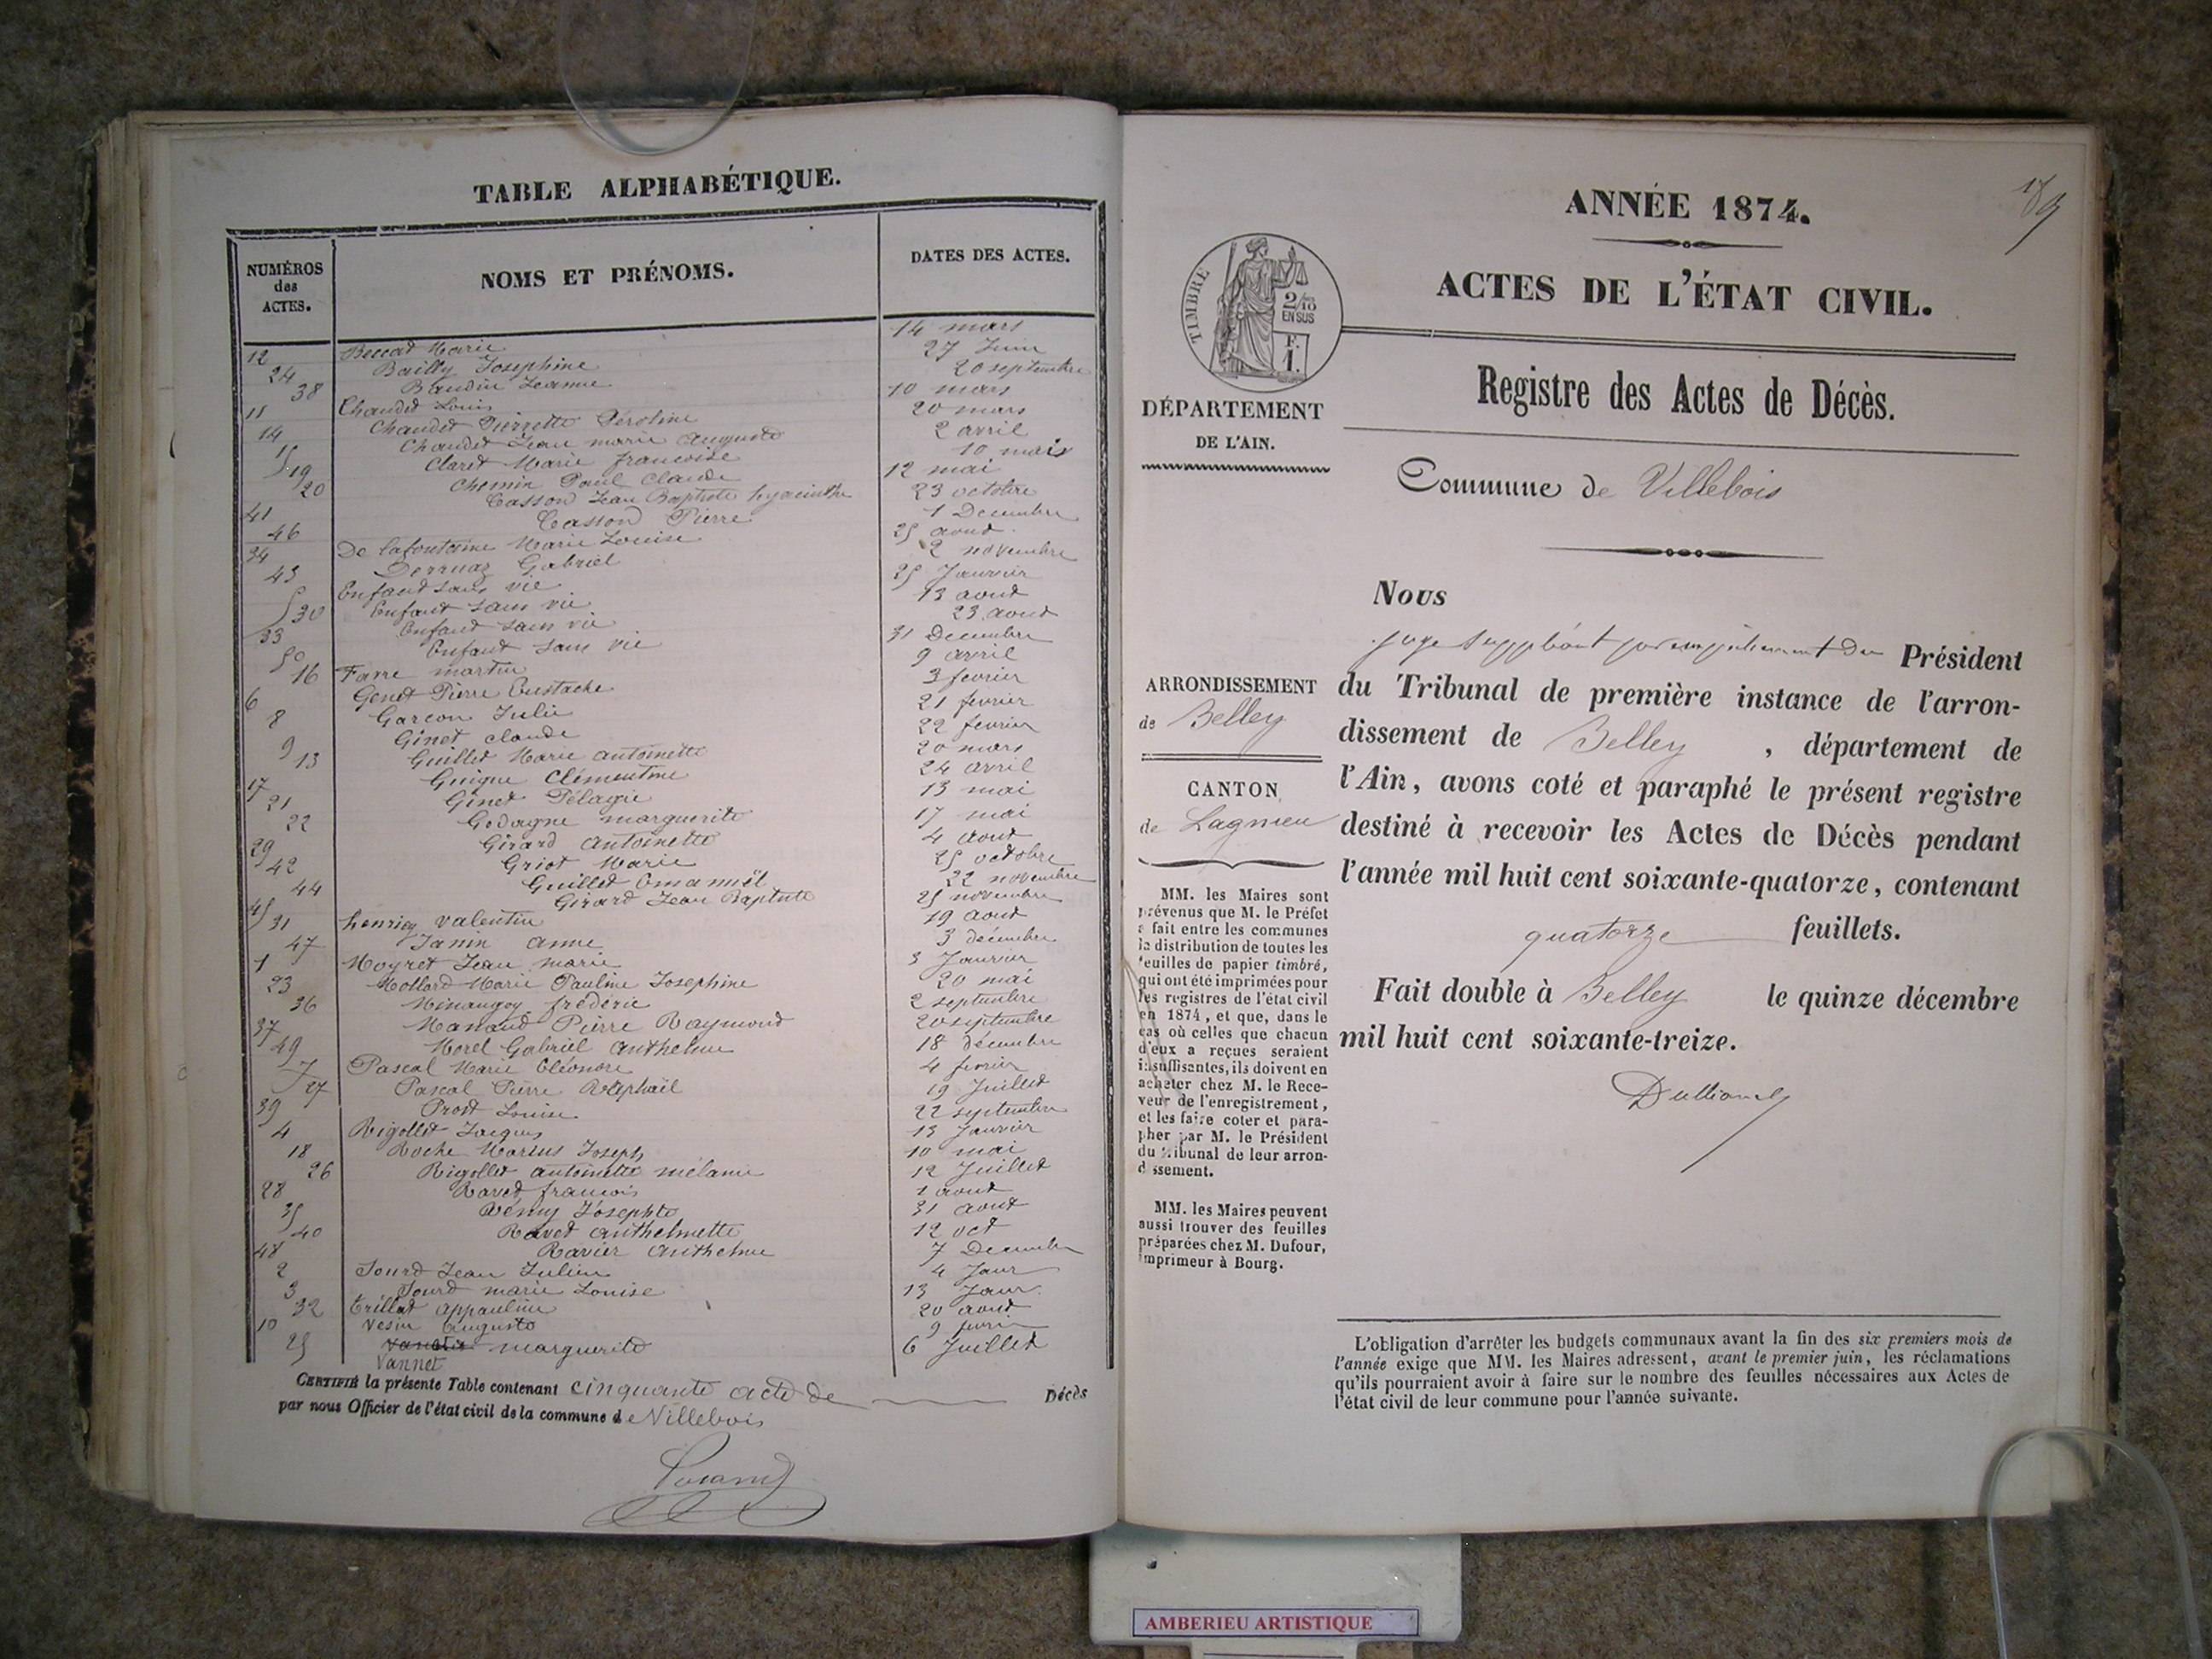 TABLE ALPHABÉTIQUE.
NUMÉROS des ACTES.
NOMS ET PRÉNOMS.
DATES DES ACTES.
12 Beccat Marie 14 mars
24 Bailly Josephine 27 Juin
38 Baudin Jeanne 20 septembre
11 Chaudet Louis 10 mars
14 Chaudet Pierrette Peroline 20 mars
15 Chaudet Jean marie Auguste 2 avril
19 Claret Marie francoise 10 mais
20 Chemin Paul Claude 12 mai
41 Casson Jean Baptiste hyacinthe 23 octobre
46 Casson Pierre 1 Decembre
34 De lafontaine Marie Louise 25 aout
43 Derruaz Gabriel 2 novembre
5 Enfant sans vie 25 Janvier
30 Enfant sans vie 13 aout
33 Enfant sans vie 23 aout
50 Enfant sans vie 31 Decembre
16 Favre martin 9 avril
6 Genet Pierre Eustache 3 fevrier
8 Garcon Julie 21 fevrier
9 Ginet claude 22 fevrier
13 Guillet Marie antoinette 20 mars
17 Guigue Clémentine 24 avril
21 Ginet Pélagie 13 mai
22 Godagne marguerite 17 mai
29 Girard Antoinette 4 Aout
42 Griot Marie 25 octobre
44 Guillet Emannuel 22 novembre
45 Girard Jean Baptiste 25 novembre
31 henriq valentin 19 aout
47 Janin anne 3 décembre
1 Moyret Jean marie 3 Janvier
23 Mollard Marie Pauline Josephine 20 mai
36 Minangoy fréderic 2 septembre
37 Manaud Pierre Raymond 20 septembre
49 Morel Gabriel Anthelme 18 décembre
7 Pascal Marie Eléonore 4 fevrier
27 Pascal Pierre Raphaël 19 Juillet
39 Prost Louise 22 septembre
4 Rigollet Jacques 13 Janvier
18 Roche Marius Joseph 10 mai
26 Rigollet antoinette mélanie 12 Juillet
28 Ravet francois 1 aout
35 Rémy Josephte 31 aout
40 Ravet anthelmette 12 oct
48 Ravier Anthelme 7 Decembre
2 Sourd Jean Julien 4 Janv
3 Sourd marie Louise 13 Janv.
32 trillat appauline 20 aout
10 vesin Augusto 9 fevrier
25 marguerite 6 Juillet
Vannet
CERTIFIÉ la présente Table contenant cinquante acte de Décès
par nous Officier de l'état civil de la commune de Villebois
189
ANNÉE 1874.
ACTES DE L'ÉTAT CIVIL.
TIMBRE
2/10 EN SUS
F. 1.
Registre des Actes de Décès.
DÉPARTEMENT
DE L'AIN.
Commune de Villebois
Nous
juge suppléant par empêchement du Président
du Tribunal de première instance de l'arron-
dissement de Belley, département de
l'Ain, avons coté et paraphé le présent registre
destiné à recevoir les Actes de Décès pendant
l'année mil huit cent soixante-quatorze, contenant
quatorze feuillets.
Fait double à Belley le quinze décembre
mil huit cent soixante-treize.
ARRONDISSEMENT
de Belley
CANTON
de Lagnieu
MM. les Maires sont
prévenus que M. le Préfet
a fait entre les communes
la distribution de toutes les
feuilles de papier timbré,
qui ont été imprimées pour
les registres de l'état civil
en 1874, et que, dans le
cas où celles que chacun
d'eux a reçues seraient
insuffisantes, ils doivent en
acheter chez M. le Rece-
veur de l'enregistrement,
et les faire coter et para-
pher par M. le Président
du tribunal de leur arron-
dissement.
MM. les Maires peuvent
aussi trouver des feuilles
préparées chez M. Dufour,
imprimeur à Bourg.
L'obligation d'arrêter les budgets communaux avant la fin des six premiers mois de
l'année exige que MM. les Maires adressent, avant le premier juin, les réclamations
qu'ils pourraient avoir à faire sur le nombre des feuilles nécessaires aux Actes de
l'état civil de leur commune pour l'année suivante.
AMBERIEU ARTISTIQUE